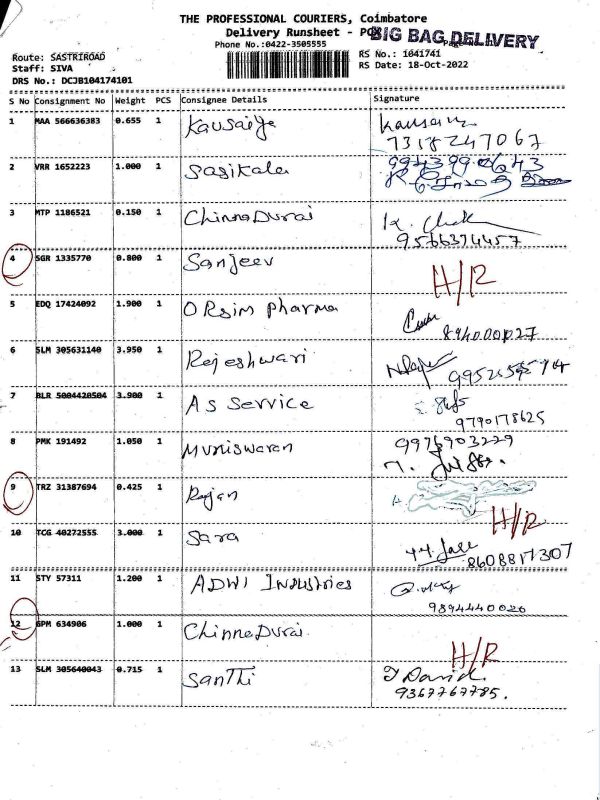 THE PROFESSIONAL COURIERS, Coimbatore
Delivery Runsheet - PCX
BIG BAG DELIVERY
Phone No.:0422-3505555
Route: SASTRIROAD
RS No.: 1041741
Staff: SIVA
RS Date: 18-Oct-2022
DRS No.: DCJB104174101
S No Consignment No Weight PCS Consignee Details Signature
1 MAA 566636383 0.655 1 Kausalya
7318247067
2 VRR 1652223 1.000 1 Sasikala
3 MTP 1186521 0.150 1 ChinnaDurai
9566374457
4 SGR 1335770 0.800 1 Sanjeev H/R
5 EDQ 17424092 1.900 1 ORSim pharma
6 SLM 305631140 3.950 1 Rajeshwari
7 BLR 5004420504 3.900 1 AS Service
9790178625
8 PMK 191492 1.050 1 Muniswaran 9976903229
9 TRZ 31387694 0.425 1 Rajan
H/R
10 TCG 40272555 3.000 1 Sara
8608817307
11 STY 57311 1.200 1 ADWI Industries
9894440020
12 GPM 634906 1.000 1 ChinnaDurai
H/R
13 SLM 305640043 0.715 1 Santhi J David.
9367767785.